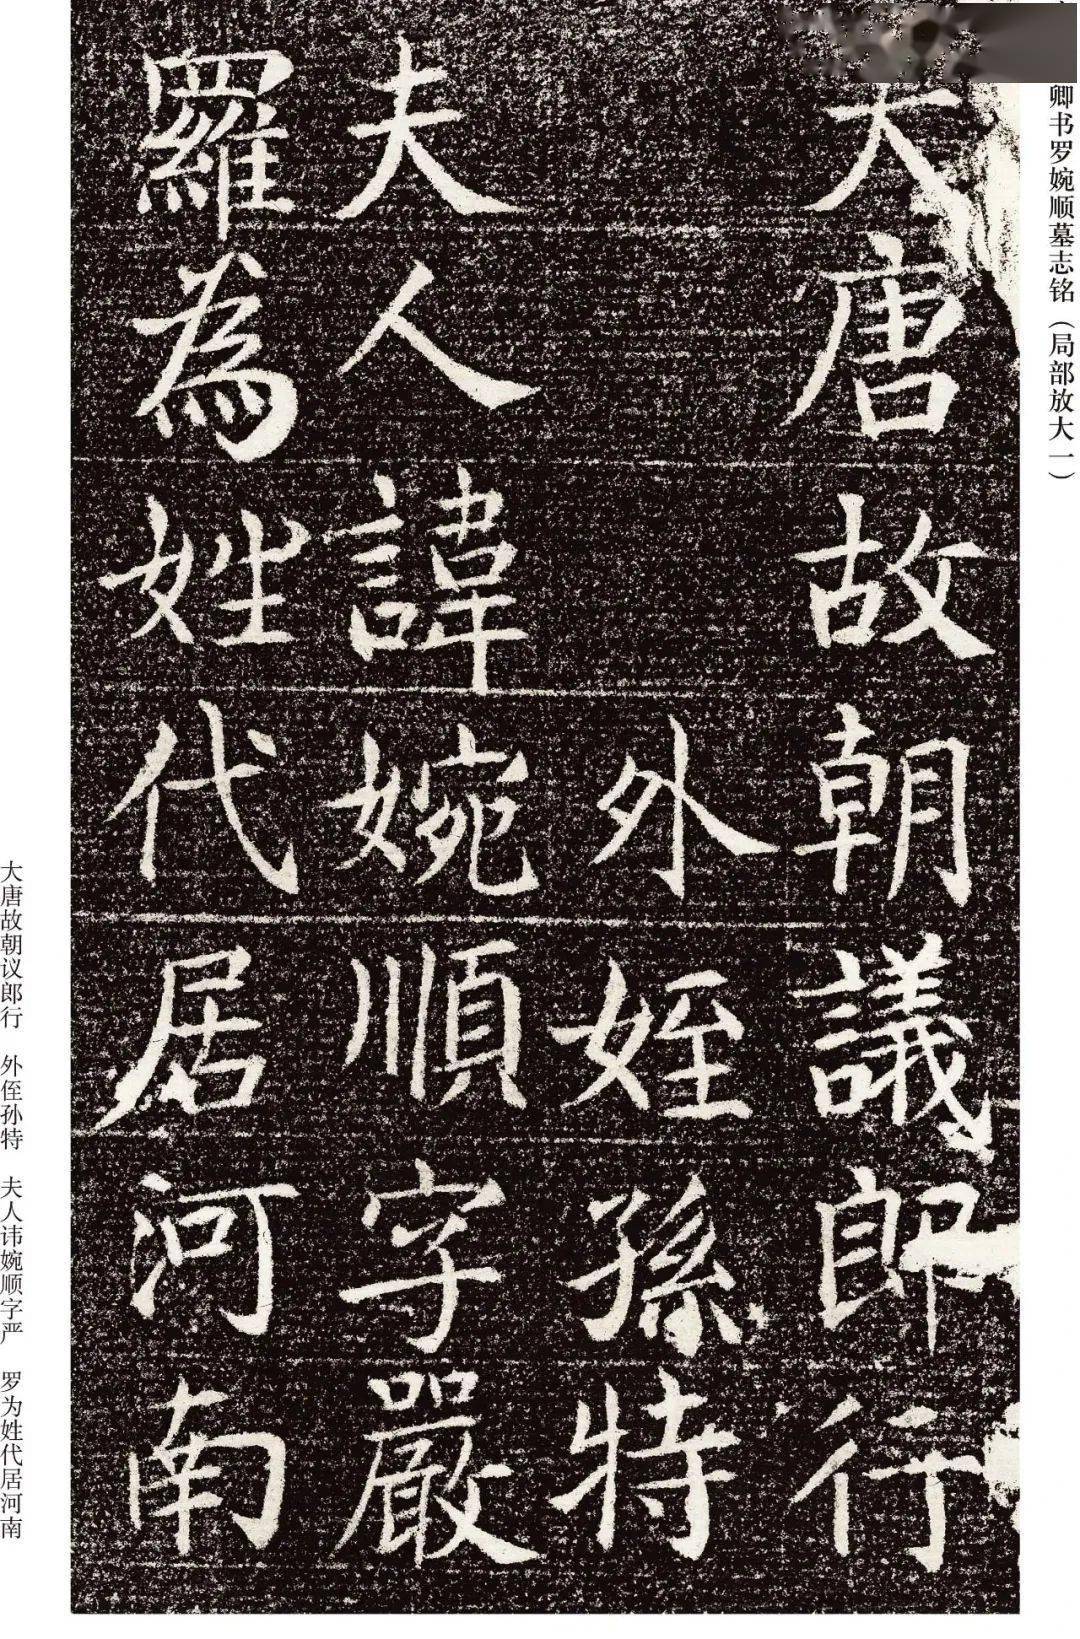 卿书罗婉顺墓志铭（局部放大一）
大唐故朝議郎行
外姪孫特
夫人諱婉順字嚴
羅為姓代居河南
大唐故朝议郎行　外侄孙特　夫人讳婉顺字严　罗为姓代居河南